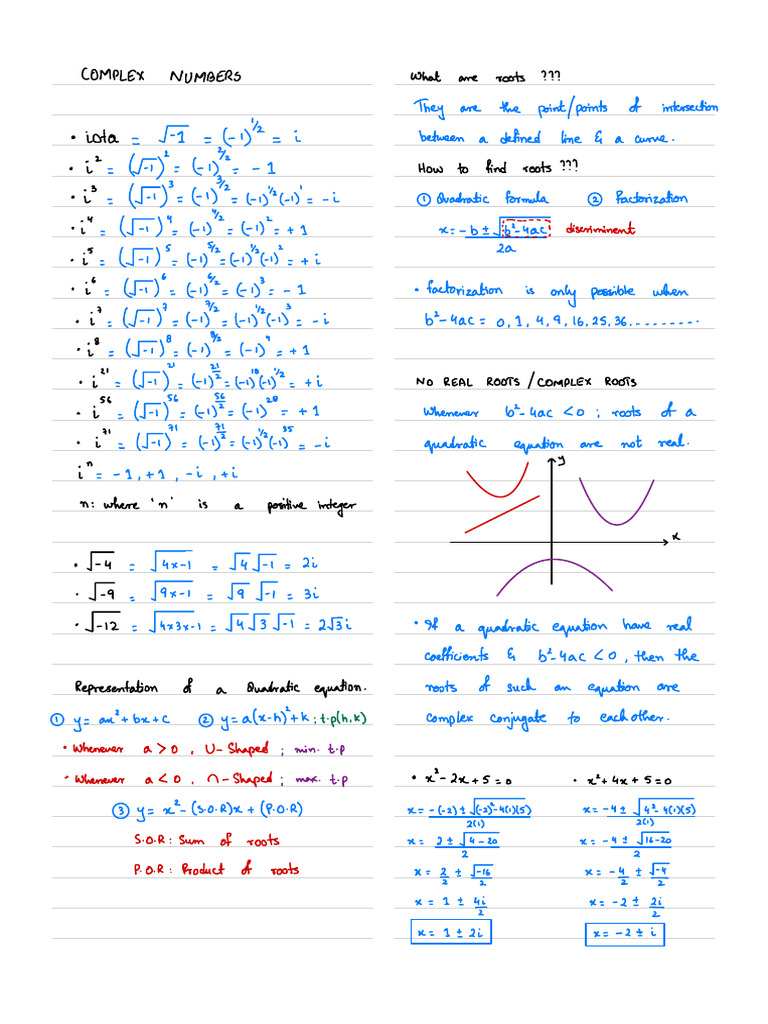 COMPLEX NUMBERS
• iota = √-1 = (-1)^1/2 = i
• i^2 = (√-1)^2 = (-1)^2/2 = -1
• i^3 = (√-1)^3 = (-1)^3/2 = (-1)^1/2 (-1)^1 = -i
• i^4 = (√-1)^4 = (-1)^4/2 = (-1)^2 = +1
• i^5 = (√-1)^5 = (-1)^5/2 = (-1)^1/2 (-1)^2 = +i
• i^6 = (√-1)^6 = (-1)^6/2 = (-1)^3 = -1
• i^7 = (√-1)^7 = (-1)^7/2 = (-1)^1/2 (-1)^3 = -i
• i^8 = (√-1)^8 = (-1)^8/2 = (-1)^4 = +1
• i^21 = (√-1)^21 = (-1)^21/2 = (-1)^10 (-1)^1/2 = +i
• i^56 = (√-1)^56 = (-1)^56/2 = (-1)^28 = +1
• i^71 = (√-1)^71 = (-1)^71/2 = (-1)^1/2 (-1)^35 = -i
i^n = -1, +1, -i, +i
n: where 'n' is a positive integer
• √-4 = √4x-1 = √4 √-1 = 2i
• √-9 = √9x-1 = √9 √-1 = 3i
• √-12 = √4x3x-1 = √4 √3 √-1 = 2√3 i
Representation of a Quadratic equation.
① y = ax^2 + bx + c ② y = a(x-h)^2 + k ; t.p(h,k)
• Whenever a > 0 , U-Shaped ; min. t.p
• Whenever a < 0 , ∩-Shaped ; max. t.p
③ y = x^2 - (S.O.R)x + (P.O.R)
S.O.R : Sum of roots
P.O.R : Product of roots
What are roots ???
They are the point/points of intersection
between a defined line & a curve.
How to find roots ???
① Quadratic formula ② Factorization
x = -b ± √b^2-4ac / 2a discriminent
• factorization is only possible when
b^2-4ac = 0, 1, 4, 9, 16, 25, 36, ........
NO REAL ROOTS / COMPLEX ROOTS
Whenever b^2-4ac < 0 ; roots of a
quadratic equation are not real.
y
x
• If a quadratic equation have real
coefficients & b^2-4ac < 0, then the
roots of such an equation are
complex conjugate to each other.
• x^2 - 2x + 5 = 0
x = -(-2) ± √(-2)^2-4(1)(5) / 2(1)
x = 2 ± √4-20 / 2
x = 2/2 ± √-16/2
x = 1 ± 4i/2
x = 1 ± 2i
• x^2 + 4x + 5 = 0
x = -4 ± √4^2-4(1)(5) / 2(1)
x = -4 ± √16-20 / 2
x = -4/2 ± √-4/2
x = -2 ± 2i/2
x = -2 ± i